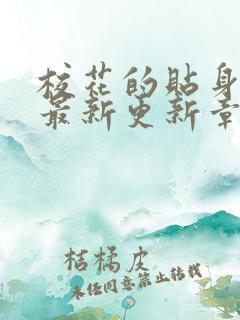 校花的贴身
最新更新章
桔橘皮
未经同意禁止转载